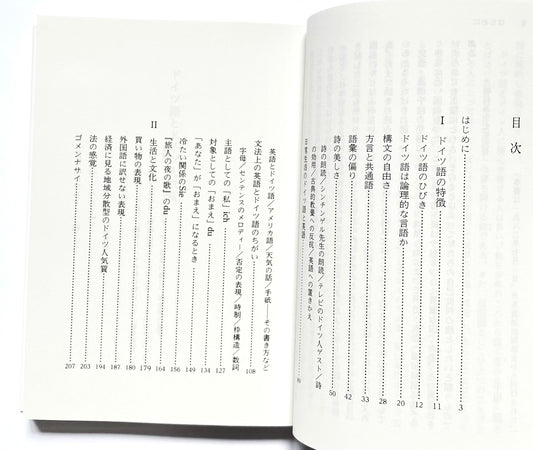 目次
はじめに 3
I ドイツ語の特徴 11
ドイツ語のひびき 12
ドイツ語は論理的な言語か 20
構文の自由さ 28
方言と共通語 33
語彙の偏り 42
詩の美しさ 50
詩の朗読／シンチンゲル先生の朗読／テレビのドイツ人ゲスト／詩
の効用／古典的教養への反抗／英語への置きかえ
日常生活のドイツ語と英語
英語とドイツ語／アメリカ語／天気の話／手紙——その書き方など
文法上の英語とドイツ語のちがい 108
字母／センテンスのメロディー／否定の表現／時制／枠構造／数詞
主語としての「私」ich 127
対象としての「おまえ」du 134
「あなた」が「おまえ」になるとき 149
冷たい関係のSie 156
『旅人の夜の歌』のdu 164
II 生活と文化 179
買い物の表現 180
外国語に訳せない表現 187
経済に見る地域分散型のドイツ人気質 194
法の感覚 203
ゴメンナサイ 207